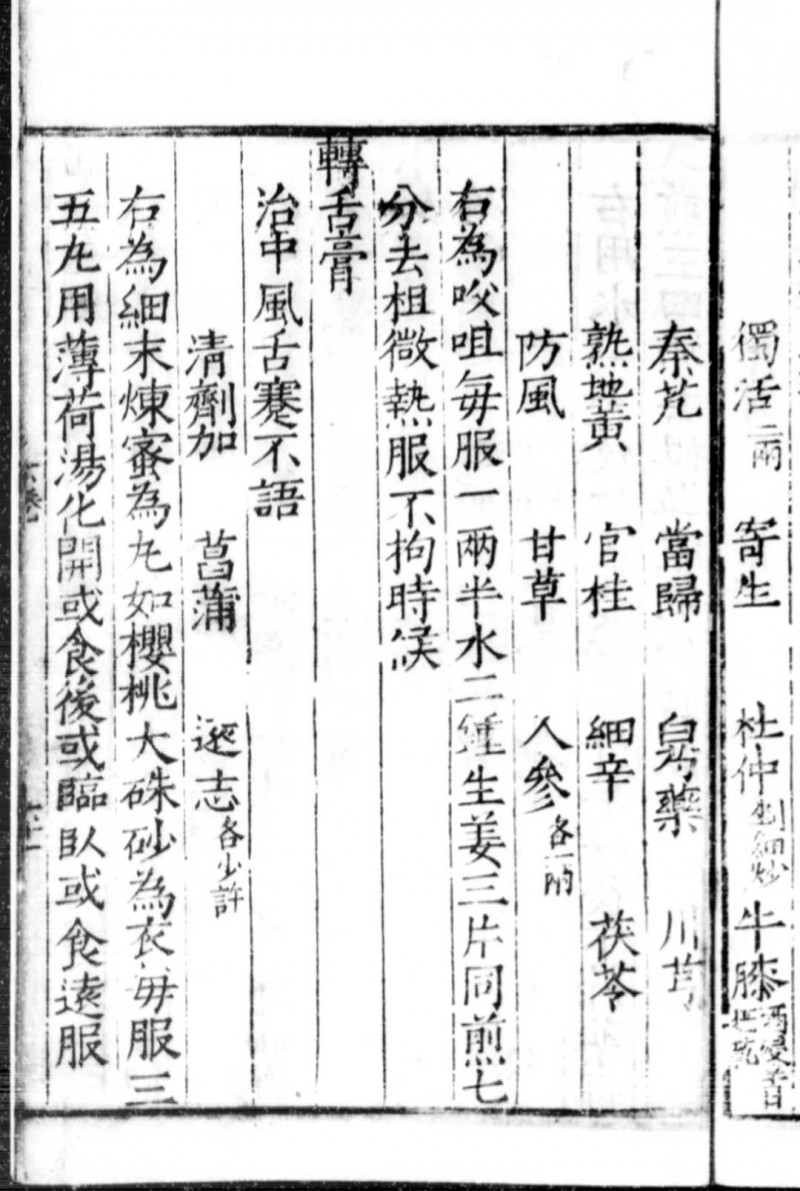 獨活二兩 寄生 杜仲剉細炒 牛膝酒浸
秦艽 當歸 白芍藥 川芎
熟地黃 官桂 細辛 茯苓
防風 甘草 人參各一兩
右為㕮咀每服一兩半水二鍾生姜三片同煎七
分去柤微熱服不拘時候
轉舌膏
治中風舌蹇不語
清劑加 菖蒲 遠志各少許
右為細末煉蜜為丸如櫻桃大硃砂為衣每服三
五丸用薄荷湯化開或食後或臨臥或食遠服